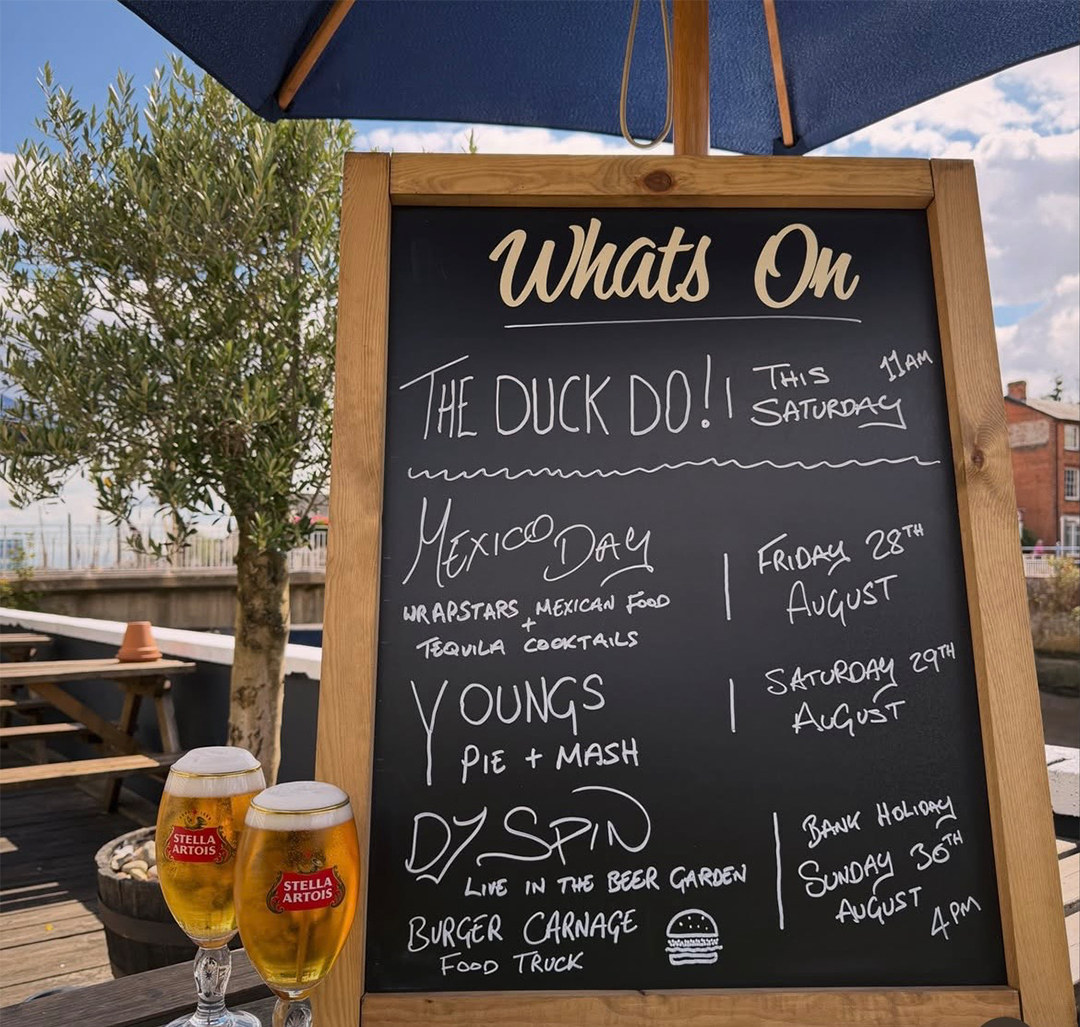 Whats On
THE DUCK DO! | THIS SATURDAY 11AM
MEXICO DAY
WRAPSTARS MEXICAN FOOD
+
TEQUILA COOKTAILS
FRIDAY 28TH
AUGUST
YOUNGS
PIE + MASH
SATURDAY 29TH
AUGUST
DJ SPIN
LIVE IN THE BEER GARDEN
BURGER CARNAGE
FOOD TRUCK
BANK HOLIDAY
SUNDAY 30TH
AUGUST
4PM
STELLA
ARTOIS
STELLA
ARTOIS